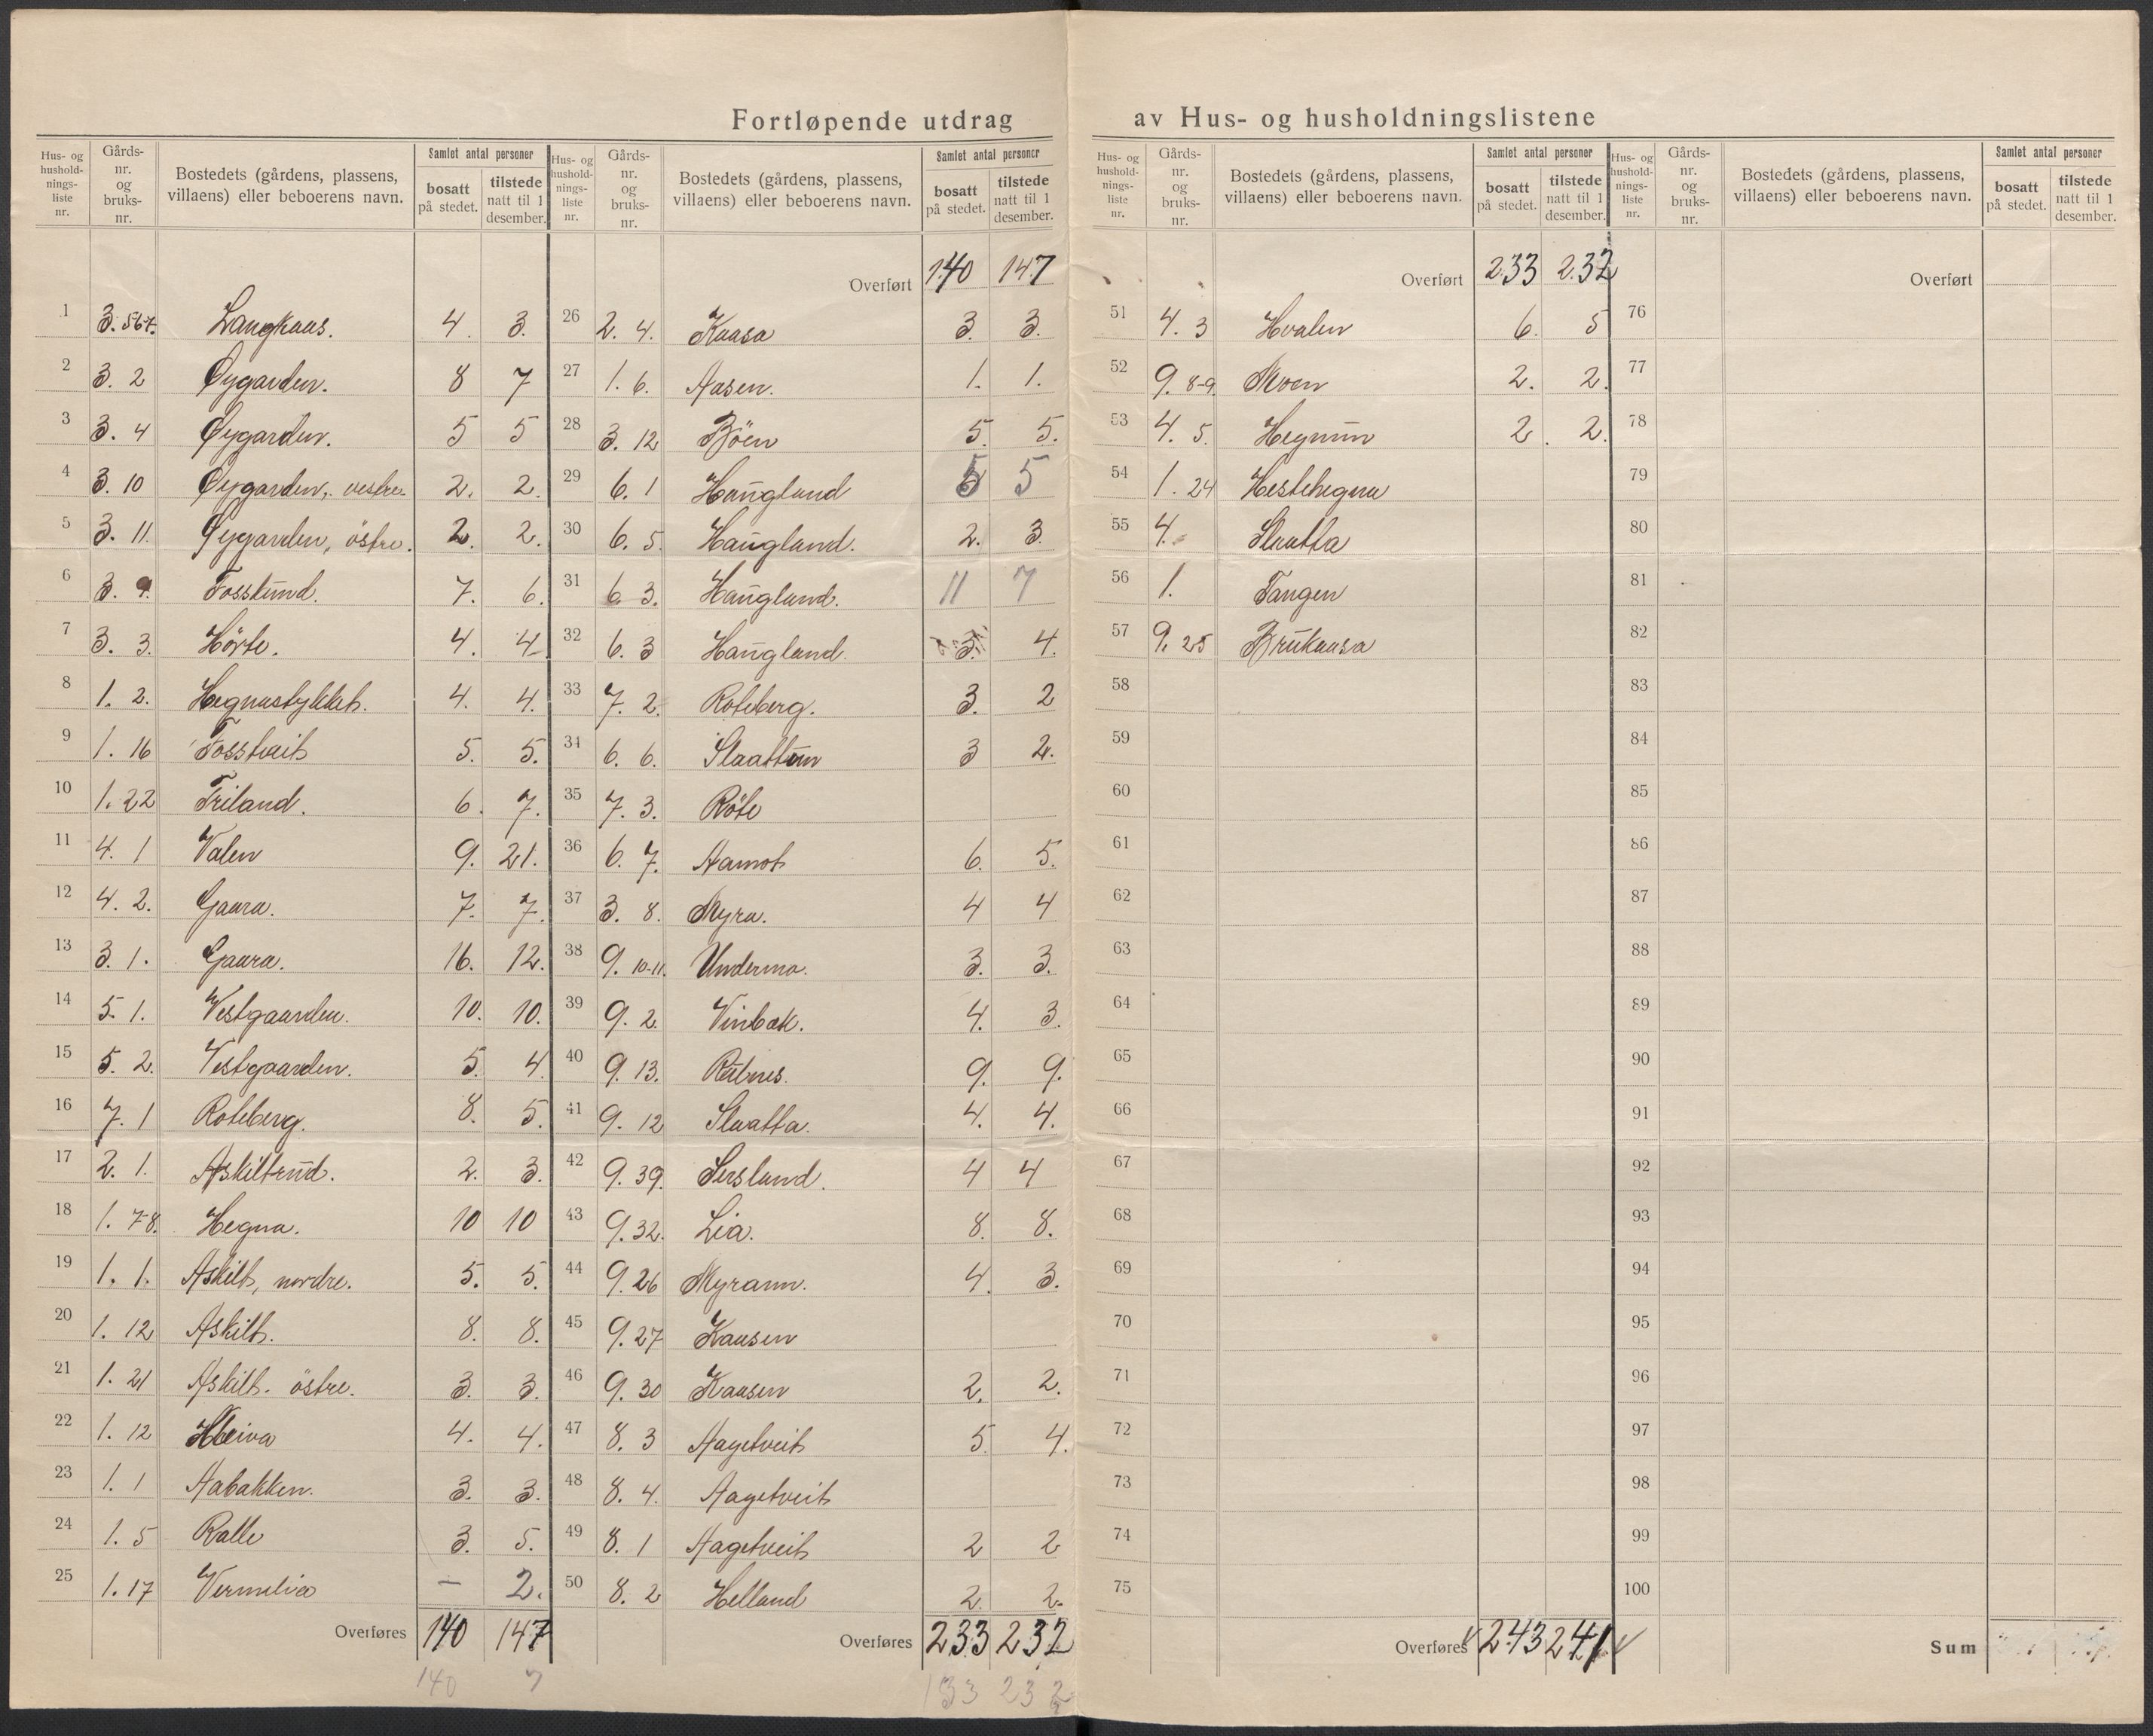 Fortløpende utdrag av Hus- og husholdningslistene
Hus- og hushold-nings-liste nr. | Gårds-nr. og bruks-nr. | Bostedets (gårdens, plassens, villaens) eller beboerens navn. | Samlet antal personer | bosatt på stedet. | tilstede natt til 1 desember.
1 3. 567. Langkaas. 4 3.
2 3. 2 Øygarden. 8 7
3 3. 4 Øygarden. 5 5
4 3. 10 Øygarden, vestre. 2. 2.
5 3. 11. Øygarden, östre. 2. 2.
6 3. 9. Fosslund. 7. 6.
7 3. 3. Hörte. 4. 4
8 1. 2. Hegnastykket. 4. 4.
9 1. 16 Fosstveit 5. 5.
10 1. 22 Friland. 6. 7.
11 4. 1 Valen 9. 21.
12 4. 2. Gaara. 7. 7.
13 3. 1. Gaara. 16. 12.
14 5. 1. Vestgaarden. 10. 10.
15 5. 2. Vestgaarden. 5. 4.
16 7. 1 Roteberg. 8. 5.
17 2. 1. Askiltrud. 2. 3.
18 1. 78. Hegna. 10 10
19 1. 1. Askilt, nordre. 5. 5.
20 1. 12 Askilt. 8. 8.
21 1. 21 Askilt. östre. 3. 3.
22 1. 12 Heiva 4. 4.
23 1. 1 Aabakken. 3. 3.
24 1. 5 Ralle 3. 5.
25 1. 17 Vermelia – 2.
Overføres 140 147
140 7
Hus- og hushold-nings-liste nr. | Gårds-nr. og bruks-nr. | Bostedets (gårdens, plassens, villaens) eller beboerens navn. | Samlet antal personer | bosatt på stedet. | tilstede natt til 1 desember.
Overført 140 147
26 2. 4. Kaasa 3. 3.
27 1. 6. Aasen. 1. 1.
28 3. 12 Böen 5. 5.
29 6. 1 Haugland 5 5
30 6. 5. Haugland. 2. 3.
31 6. 3. Haugland. 11 7
32 6. 3 Haugland. 3. 4.
33 7. 2. Roteberg. 3. 2
34 6. 6. Slaattun 3 2.
35 7. 3. Röte
36 6. 7. Aamot 6. 5.
37 3. 8. Myra. 4 4
38 9. 10-11. Undermo. 3. 3.
39 9. 2. Vinbæk. 4. 3.
40 9. 13. 9. 9.
41 9. 12 Slaatta. 4. 4.
42 9. 39. 4 4
43 9. 32. Lia. 8. 8.
44 9. 26 Myrann. 4. 3.
45 9. 27 Kaasen
46 9. 30 Kaasen 2. 2.
47 8. 3 Aagetveit 5. 4.
48 8. 4. Aagetveit
49 8. 1 Aagetveit 2 2
50 8. 2 Helland 2. 2.
Overføres 233 232
133 232
Hus- og hushold-nings-liste nr. | Gårds-nr. og bruks-nr. | Bostedets (gårdens, plassens, villaens) eller beboerens navn. | Samlet antal personer | bosatt på stedet. | tilstede natt til 1 desember.
Overført 233 232
51 4. 3 Hvalen 6. 5
52 9. 8-9. Moen 2. 2.
53 4. 5. Hegnun 2. 2.
54 1. 24 Hestehegna
55 4. Slaatta
56 1. Tangen
57 9. 25 Brukaasa
58
59
60
61
62
63
64
65
66
67
68
69
70
71
72
73
74
75
Overføres 243 241
Hus- og hushold-nings-liste nr. | Gårds-nr. og bruks-nr. | Bostedets (gårdens, plassens, villaens) eller beboerens navn. | Samlet antal personer | bosatt på stedet. | tilstede natt til 1 desember.
Overført
76
77
78
79
80
81
82
83
84
85
86
87
88
89
90
91
92
93
94
95
96
97
98
99
100
Sum